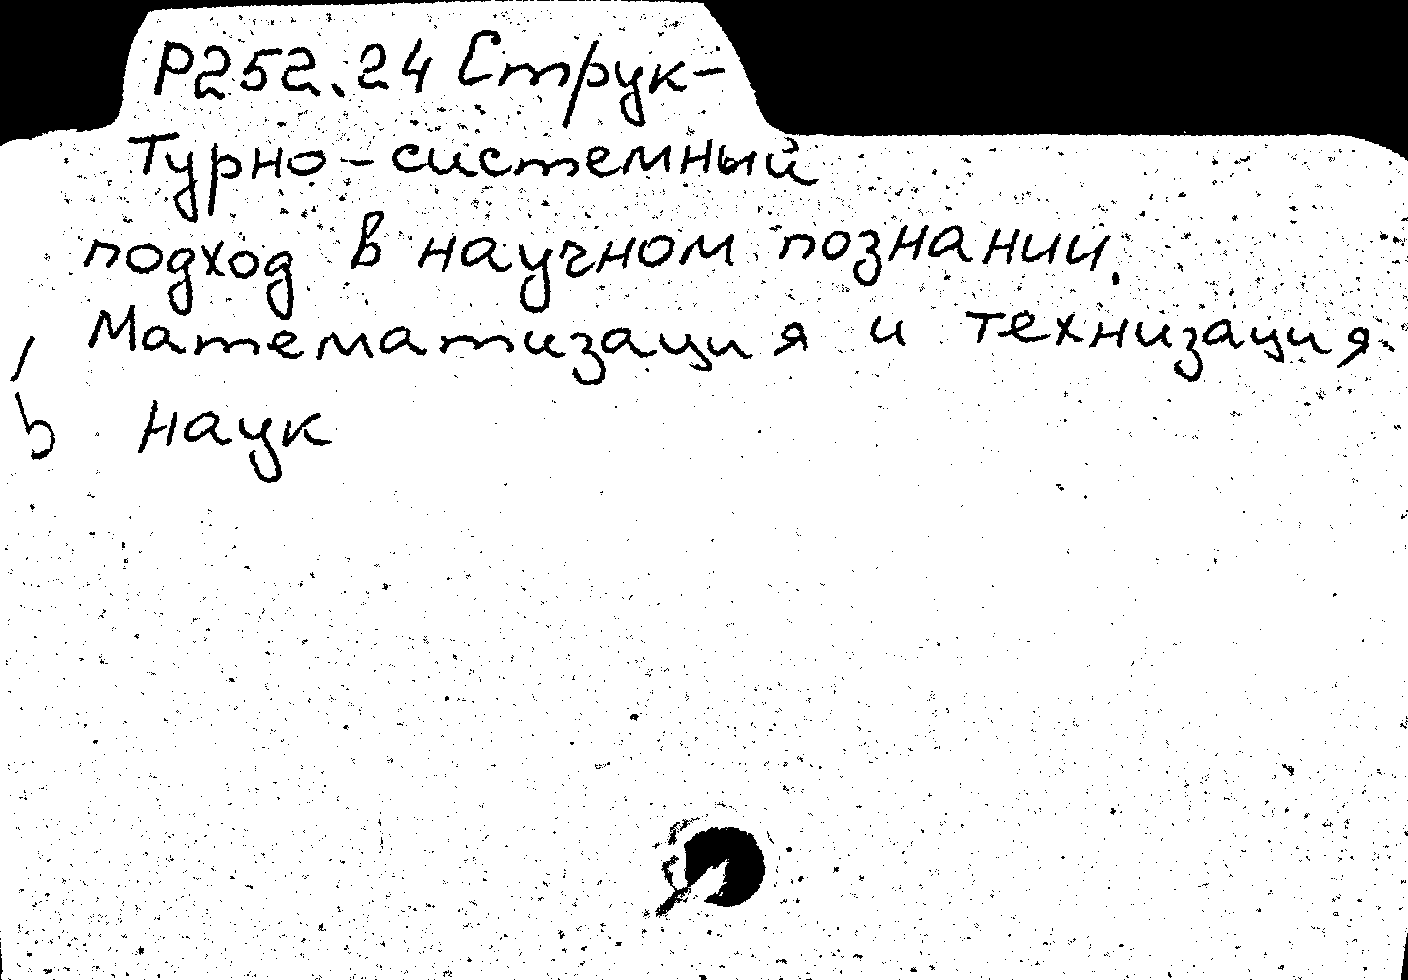 Р252.24 Струк-
турно-системный
подход в научном познании.
Математизация и технизация
наук